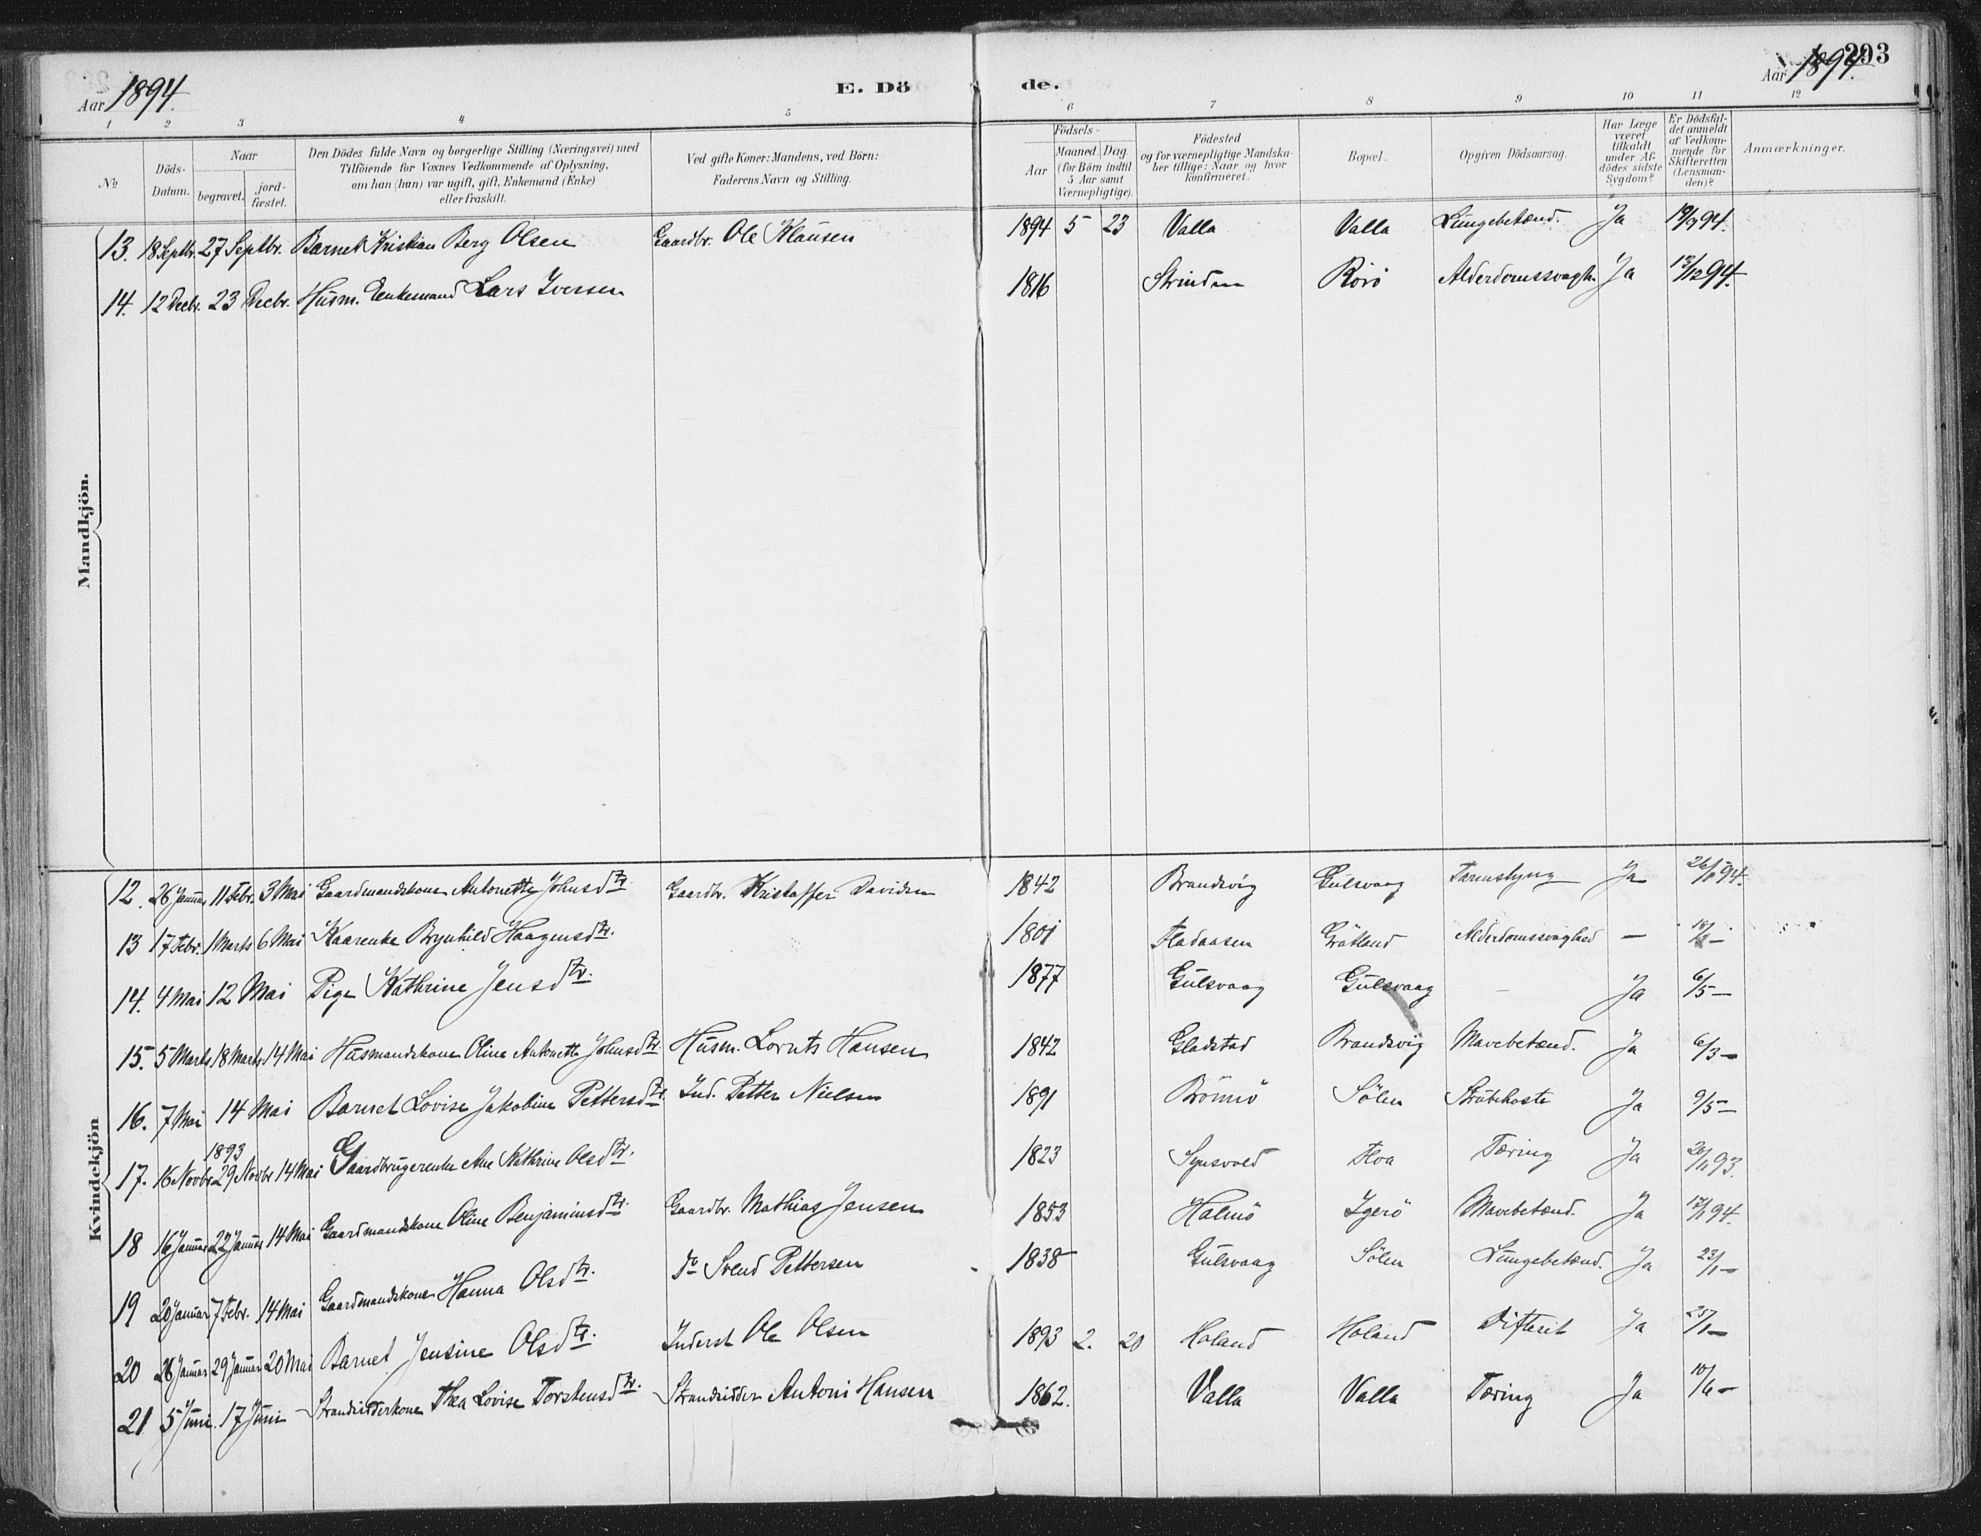 Aar 1894.
E. Döde.
Aar 1894.
293
1 2 3 4 5 6 7 8 9 10 11 12
No
Döds-Datum.
Naar begravet. jordfæstet.
Den Dödes fulde Navn og borgerlige Stilling (Næringsvei) med Tilföiende for Voxnes Vedkommende af Oplysning, om han (hun) var ugift, gift, Enkemand (Enke) eller fraskilt.
Ved gifte Koner: Mandens, ved Börn: Faderens Navn og Stilling.
Födsels- Aar Maaned. Dag (for Börn indtil 5 Aar samt Værnepligtige).
Födested og for værnepligtige Mandskaber tillige: Naar og hvor konfirmeret.
Bopæl.
Opgiven Dödsaarsag.
Har Læge været tilkaldt under Afdödes sidste Sygdom?
Er Dödsfaldet anmeldt af Vedkommende for Skifteretten (Lensmanden)?
Anmærkninger.
Mandkjön.
13. 18 Septbr. 27 Septbr. Barnet Kristian Berg Olsen Gaardbr. Ole Klausen 1894 5 23 Valla Valla Lungebetænd. Ja 19/9 94.
14. 12 Decbr. 23 Decbr. Husm. Enkemand Lars Iversen 1816 Strinden Rörö Alderdomssvagh. Ja 13/12 94.
Kvindekjön
12. 26 Januar 11 Febr. 3 Mai Gaardmandskone Antonette Johnsdtr. Gaardbr. Kristoffer Davidsen 1842 Brandsvig Gulsvaag Ja 26/1 94.
13 17 Febr. 1 Marts 6 Mai Kaarenke Brynhild Haagensdtr. 1801 Fladaasen Gråtland Alderdomssvaghed —
14. 4 Mai 12 Mai Pige Kathrine Jensdtr. 1877 Gulsvaag Gulsvaag — Ja 6/5 —
15. 5 Marts 18 Marts 14 Mai Husmandskone Oline Antonette Johnsdtr. Husm. Lornts Hansen 1842 Gladstad Brandsvig Mavebetænd. Ja 6/3 —
16. 7 Mai 14 Mai Barnet Lovise Jakobine Pettersdtr. Ind. Petter Nielsen 1891 Brönnö Sölen Strubehoste Ja 9/5 —
1893
17. 16 Novbr. 29 Novbr 14 Mai Gaardbrugerenke Ane Kathrine Olsdtr. 1823 Hva Tæring Ja 20/11 93.
18 16 Januar 22 Januar 14 Mai Gaardmandskone Oline Benjaminsdtr. Gaardbr. Mathias Jensen 1853 Halmö Igerö Mavebetænd. Ja 17/1 94.
19 20 Januar 7 Febr. 14 Mai Gaardmandskone Hanna Olsdtr. Do Svend Pettersen 1838 Gulsvaag Sölen Lungebetænd. Ja 23/1 —
20 26 Januar 29 Januar 20 Mai Barnet Jensine Olsdtr. Inderst Ole Olsen 1893 2. 20 Holand Holand Difterit Ja 25/1 —
21 5 Juni 17 Juni — Strandsidderkone Thea Lovise Torstensdtr. Strandsidder Antoni Hansen 1862. Valla Valla Tæring Ja 10/6 —